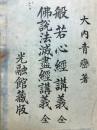 大内青巒著
般若心經講義 全
佛說法滅盡經講義 全
光融館藏版